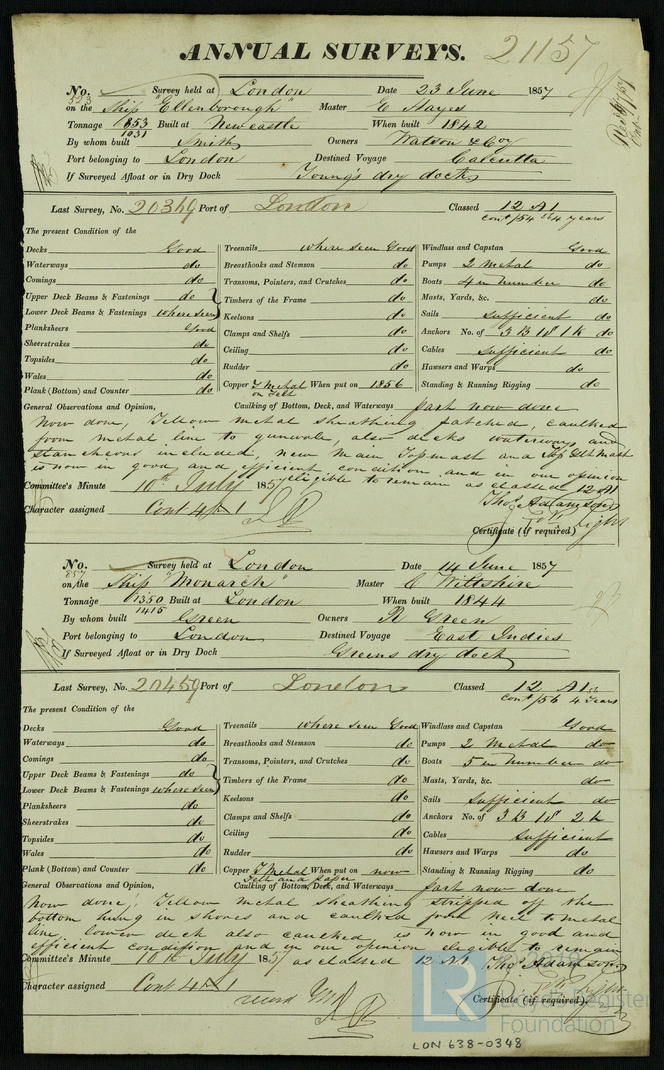 ANNUAL SURVEYS. 21157
No. 523 Survey held at London Date 23 June 1857
on the Ship "Ellenborough" Master E Hayes
Tonnage 853 1031 Built at Newcastle When built 1842
By whom built Smith Owners Watson & Coy
Port belonging to London Destined Voyage Calcutta
If Surveyed Afloat or in Dry Dock Young's dry dock
Last Survey, No. 20349 Port of London Classed 12 A1
Cont /54 4 years
The present Condition of the
Decks Good Treenails where seen Good Windlass and Capstan Good
Waterways do Breasthooks and Stemson do Pumps 2 Metal do
Comings do Transoms, Pointers, and Crutches do Boats 4 in number do
Upper Deck Beams & Fastenings do Timbers of the Frame do Masts, Yards, &c. do
Lower Deck Beams & Fastenings where seen Keelsons do Sails sufficient do
Planksheers Good Clamps and Shelfs do Anchors No. of 3 B 1 S 1 K do
Sheerstrakes do Ceiling do Cables sufficient do
Topsides do Rudder do Hawsers and Warps do
Wales do Copper Y Metal on Felt When put on 1856 Standing & Running Rigging do
Plank (Bottom) and Counter do
General Observations and Opinion, Caulking of Bottom, Deck, and Waterways Part now done
Now done, Yellow metal sheathing patched, caulked
from metal line to gunwale, also decks waterways and
stancheons included, new main Topmast and
is now in good and efficient condition and in our opinion
eligible to remain as classed 12 A1
Committee's Minute 10th July 1857
Thos. Adamson
Character assigned Cont 4/ 1
Certificate (if required)
No. 857 Survey held at London Date 14 June 1857
on the Ship "Monarch" Master C Wiltshire
Tonnage 1350 1415 Built at London When built 1844
By whom built Green Owners R Green
Port belonging to London Destined Voyage East Indies
If Surveyed Afloat or in Dry Dock Greens dry dock
Last Survey, No. 20459 Port of London Classed 12 A1
Cont /56 4 years
The present Condition of the
Decks Good Treenails where seen Good Windlass and Capstan Good
Waterways do Breasthooks and Stemson do Pumps 2 Metal do
Comings do Transoms, Pointers, and Crutches do Boats 5 in number do
Upper Deck Beams & Fastenings do Timbers of the Frame do Masts, Yards, &c. do
Lower Deck Beams & Fastenings where seen Keelsons do Sails sufficient do
Planksheers do Clamps and Shelfs do Anchors No. of 3 B 1 S 2 K
Sheerstrakes do Ceiling do Cables sufficient
Topsides do Rudder do Hawsers and Warps do
Wales do Copper Y Metal Felt and Paper When put on now Standing & Running Rigging do
Plank (Bottom) and Counter do
General Observations and Opinion, Caulking of Bottom, Deck, and Waterways Part now done
Now done; Yellow metal sheathing stripped off the
bottom hung in shores and caulked from keel to metal
line lower deck also caulked is now in good and
efficient condition and in our opinion eligible to remain
Committee's Minute 10th July 1857 as classed 12 A1 Thos. Adamson
Character assigned Cont 4/ 1
record
Certificate (if required),
LR
Lloyd's Register
Foundation
LON 638-0348